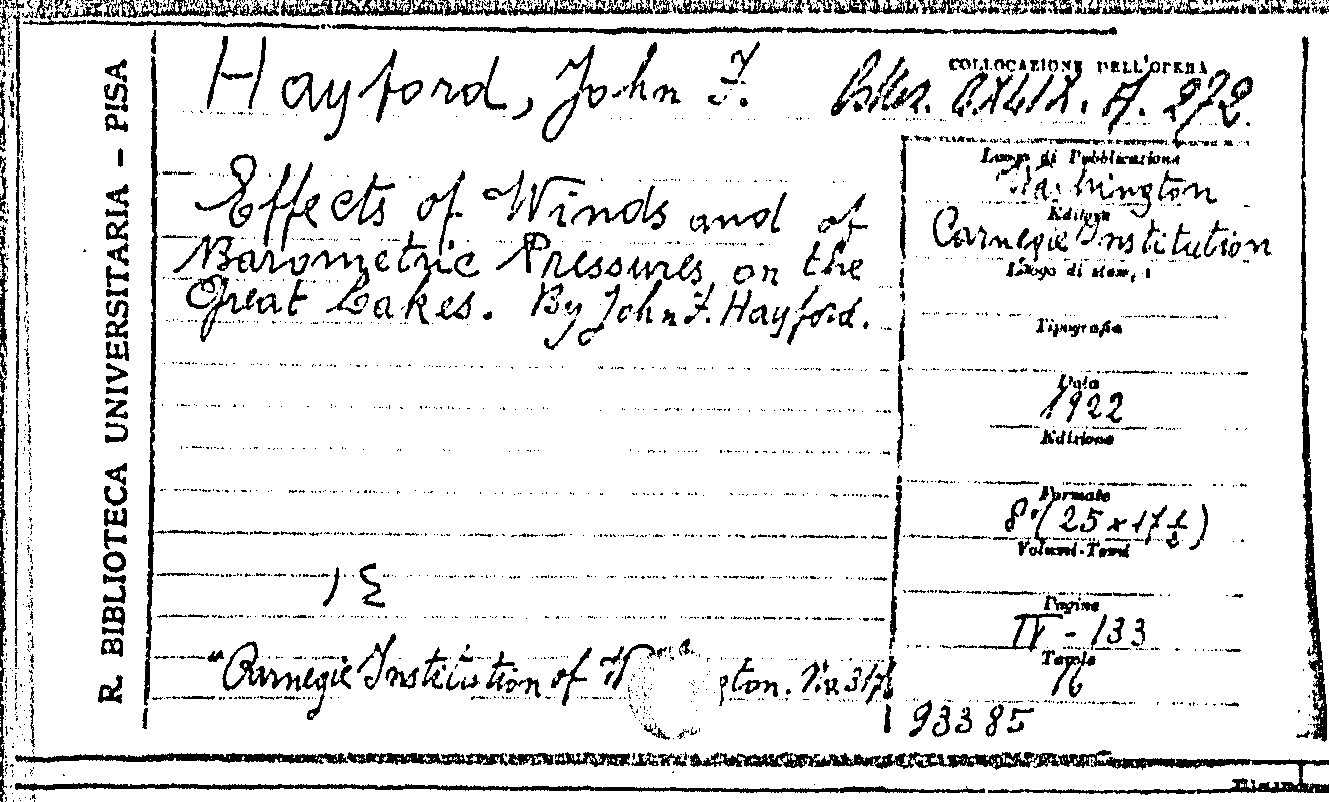 R. BIBLIOTECA UNIVERSITARIA - PISA
Hayford, John F.
COLLOCAZIONE DELL'OPERA
A. 272.
Effects of Winds and of
Barometric Pressures on the
Great Lakes. By John F. Hayford.
Luogo di Pubblicazione
Washington
Editore
Carnegie Institution
Luogo di stampa
Tipografia
Data
1922
Edizione
Formato
8° (25 x 17 ½)
Volumi-Tomi
Pagine
IV - 133
Tavole
"Carnegie Institution of W gton. 317
93385